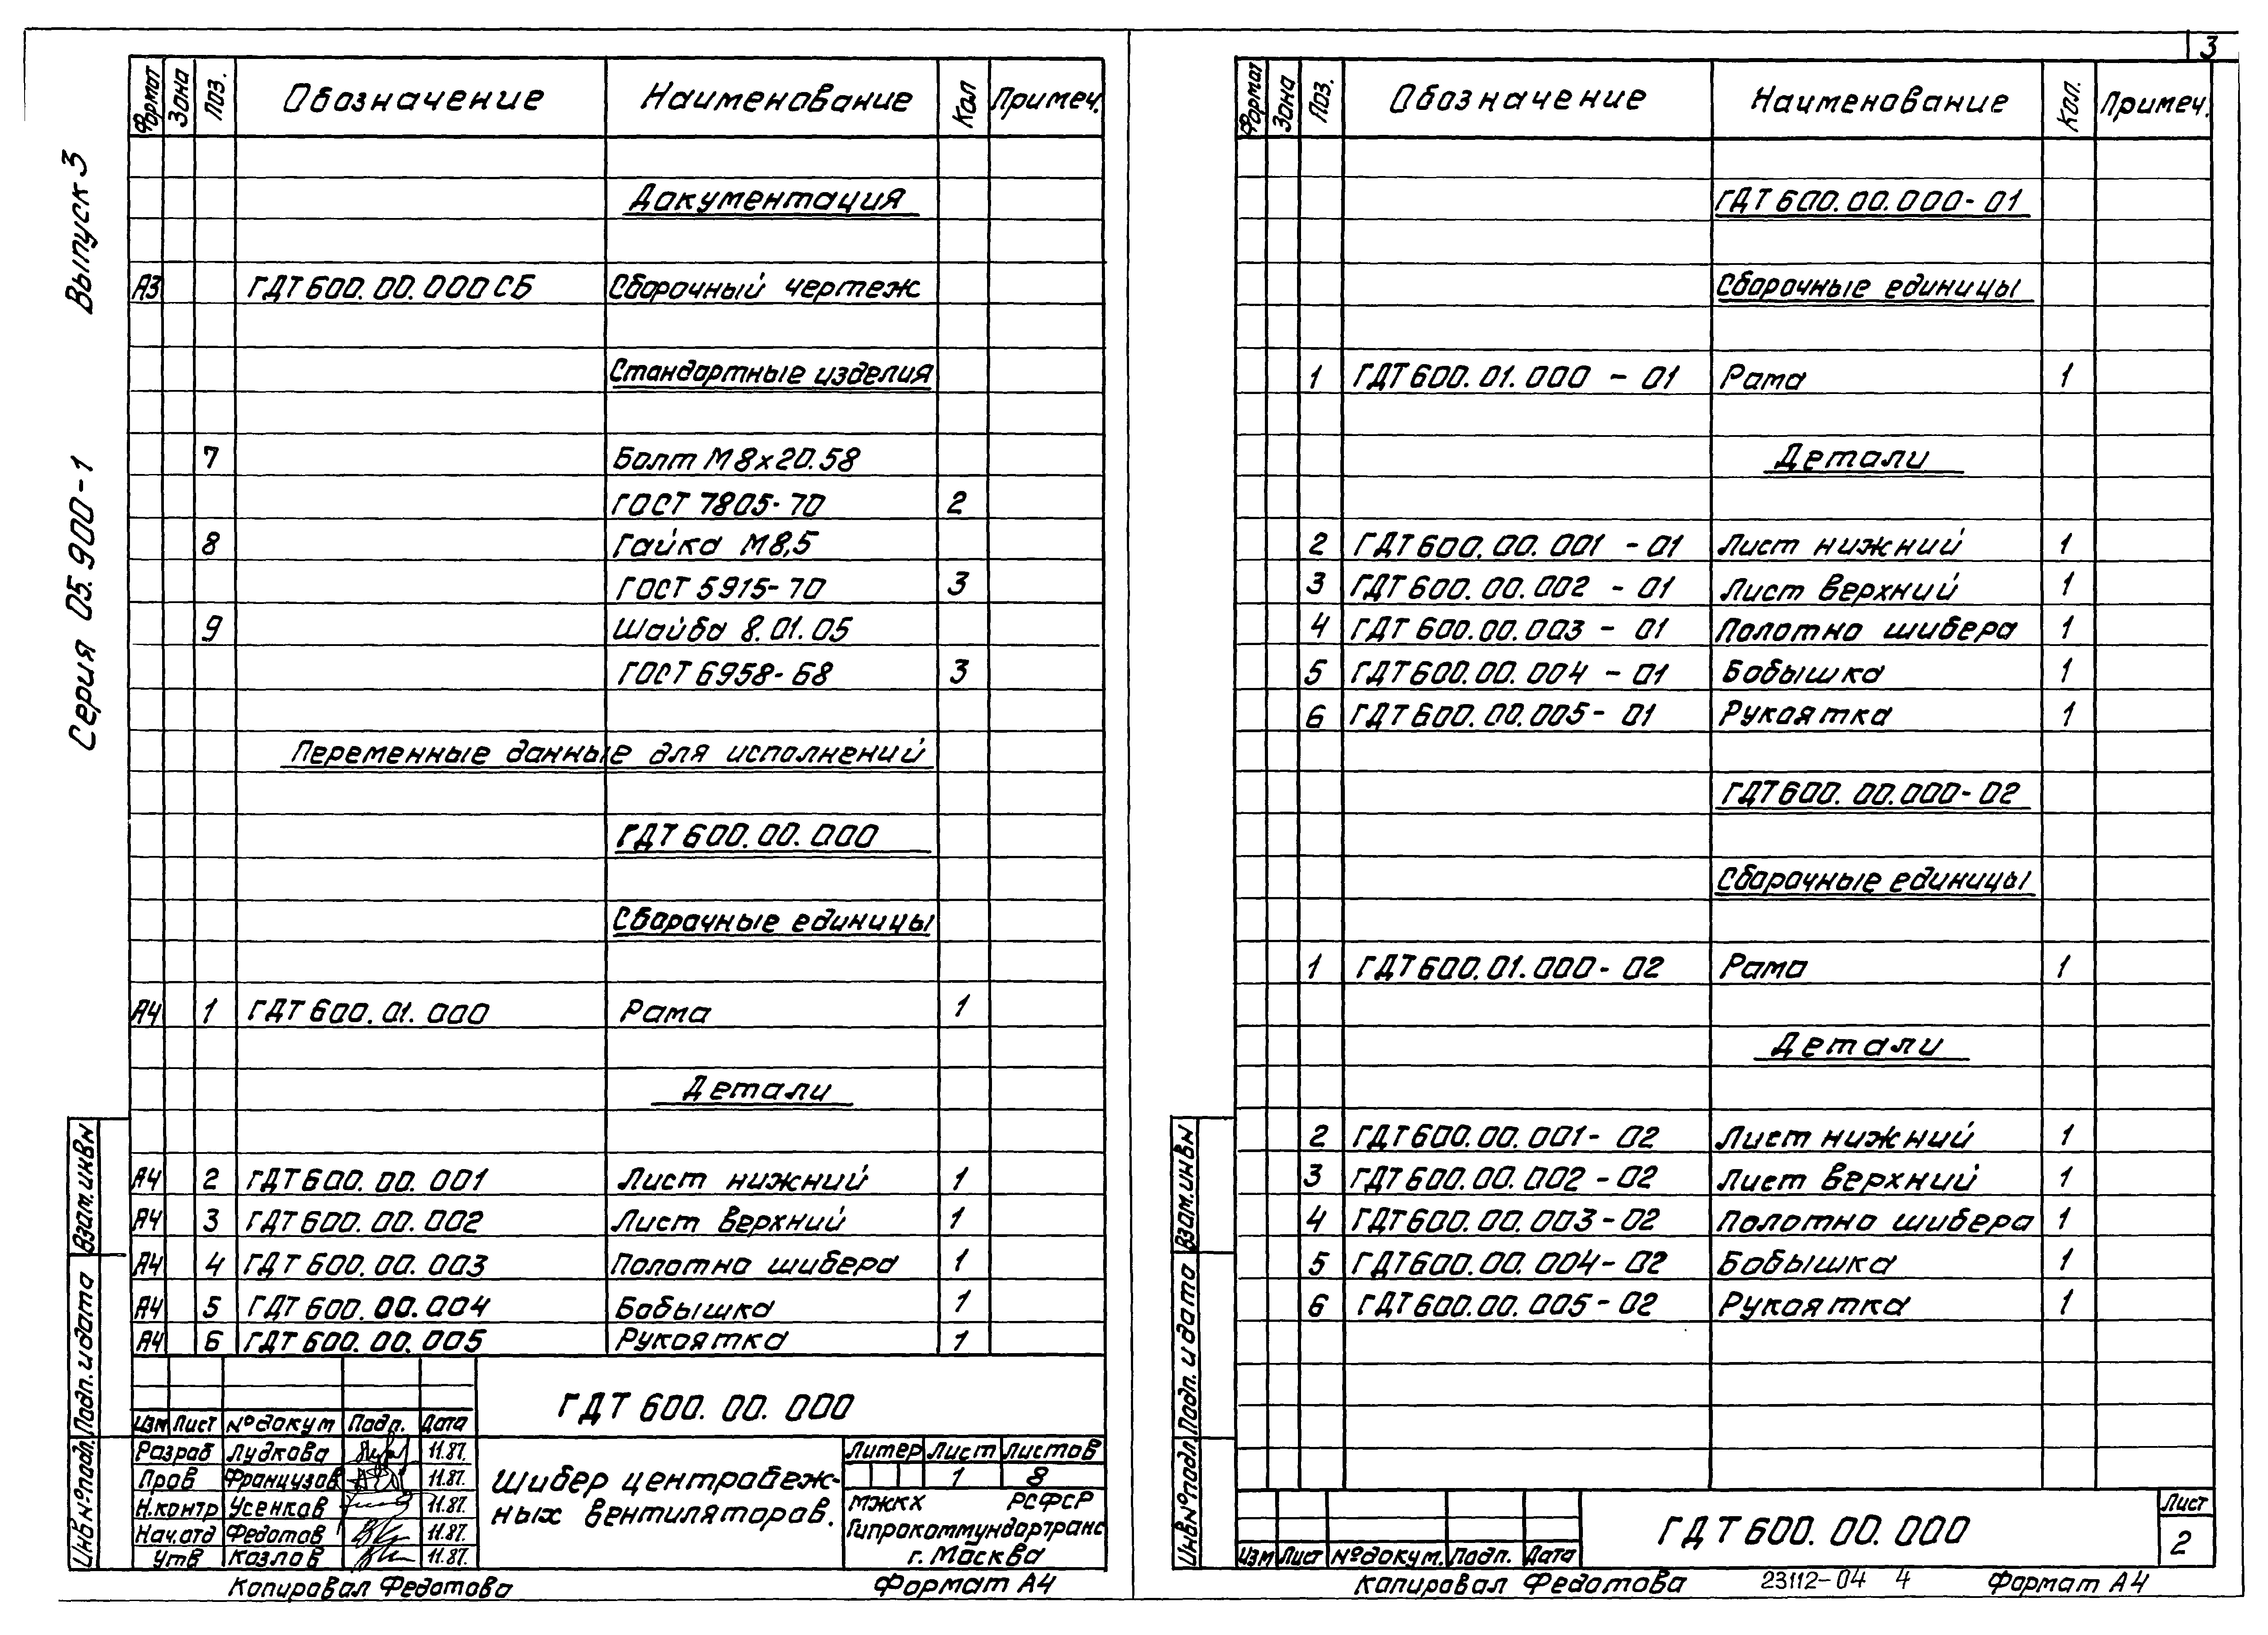 3
Выпуск 3
Серия 05.900-1
Формат Зона Поз. Обозначение Наименование Кол Примеч.
Документация
А3 ГДТ 600.00.000 СБ Сборочный чертеж
Стандартные изделия
7 Болт М8х20.58
ГОСТ 7805-70 2
8 Гайка М8,5
ГОСТ 5915-70 3
9 Шайба 8.01.05
ГОСТ 6958-68 3
Переменные данные для исполнений
ГДТ 600.00.000
Сборочные единицы
А4 1 ГДТ 600.01.000 Рама 1
Детали
А4 2 ГДТ 600.00.001 Лист нижний 1
А4 3 ГДТ 600.00.002 Лист верхний 1
А4 4 ГДТ 600.00.003 Полотно шибера 1
А4 5 ГДТ 600.00.004 Бобышка 1
А4 6 ГДТ 600.00.005 Рукоятка 1
Взам.инв№
Подп. и дата
Инв№подл.
ГДТ 600.00.000
Изм Лист № докум Подп. Дата
Разраб Лудкова 11.87.
Пров Французов 11.87.
Н.контр Усенков 11.87.
Нач.отд Федотов 11.87.
Утв Козлов 11.87.
Шибер центробеж-
ных вентиляторов.
Литер Лист Листов
1 8
МЖКХ РСФСР
Гипрокоммундортранс
г. Москва
Копировал Федотова Формат А4
Формат Зона Поз. Обозначение Наименование Кол. Примеч.
ГДТ 600.00.000-01
Сборочные единицы
1 ГДТ 600.01.000 - 01 Рама 1
Детали
2 ГДТ 600.00.001 - 01 Лист нижний 1
3 ГДТ 600.00.002 - 01 Лист верхний 1
4 ГДТ 600.00.003 - 01 Полотно шибера 1
5 ГДТ 600.00.004 - 01 Бобышка 1
6 ГДТ 600.00.005 - 01 Рукоятка 1
ГДТ 600.00.000-02
Сборочные единицы
1 ГДТ 600.01.000-02 Рама 1
Детали
2 ГДТ 600.00.001-02 Лист нижний 1
3 ГДТ 600.00.002-02 Лист верхний 1
4 ГДТ 600.00.003-02 Полотно шибера 1
5 ГДТ 600.00.004-02 Бобышка 1
6 ГДТ 600.00.005-02 Рукоятка 1
Взам.инв№
Подп. и дата
Инв№подл
Изм Лист № докум. Подп. Дата
ГДТ 600.00.000
Лист
2
Копировал Федотова 23112-04 4 Формат А4